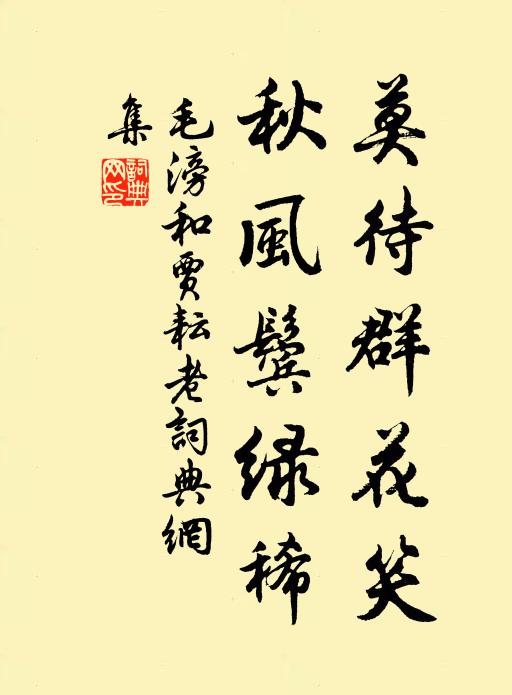 莫待群花笑
秋風鬓绿稀
毛滂和賈耘老詞典網
集
詞典網印